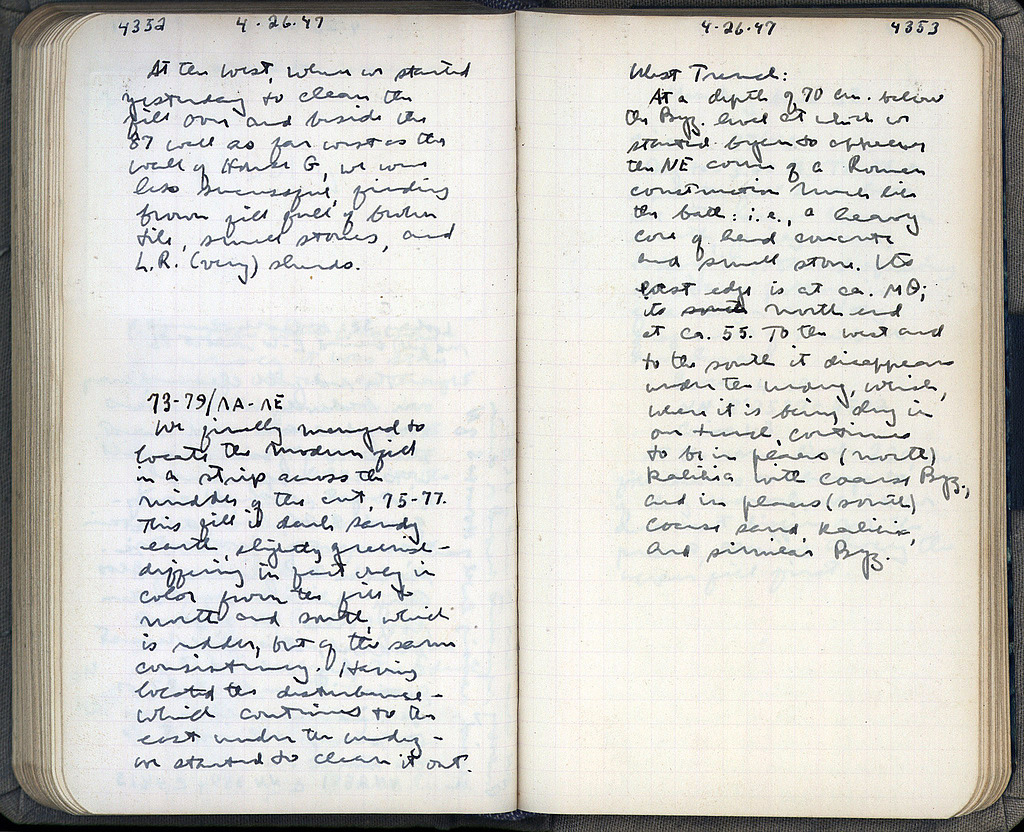 4352 4-26-47
At the west, when we started
yesterday to clean the
fill over and beside the
87 wall as far west as the
wall of House G, we were
less successful, finding
brown fill full of broken
tile, small stones, and
L.R. (very) sherds.
73-79/ΛΑ-ΛΕ
We finally managed to
locate the modern fill
in a strip across the
middle of the cut, 75-77.
This fill is dark sandy
earth, slightly greenish -
differing in fact only in
color from the fill to
north and south, which
is redder, but of the same
consistency. Having
located the disturbance -
which continues to the
east under the -
we started to clean it out.
4-26-47 4353
West Trench:
At a depth of 70 cm. below
the Byz. level at which we
started began to appear
the NE corner of a Roman
construction much like
the bath: i.e., a heavy
core of hard concrete
and small stone. Its
east edge is at ca. ΜΘ;
its south north end
at ca. 55. To the west and
to the south it disappears
under the which,
where it is being dug in
our trench, continues
to be in places (north)
kalikia with coarse Byz.,
and in places (south)
coarse sand, kalikia,
and similar Byz.